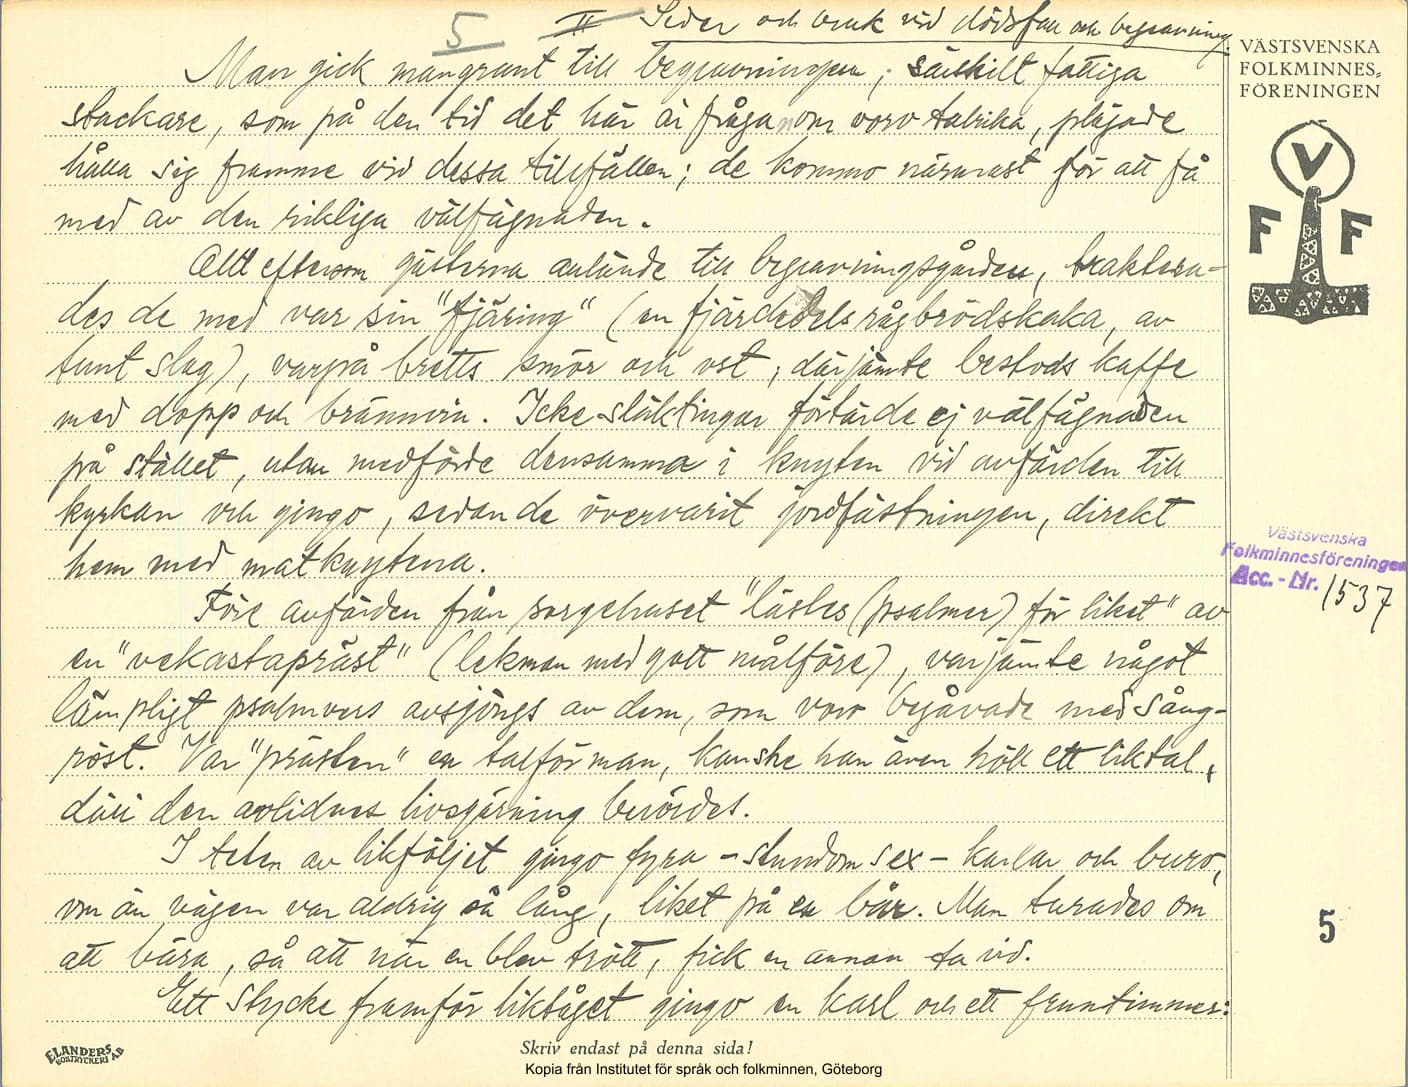 5 II Seder och bruk vid dödsfall och begravning.
Man gick mangrant till begravningen; särskilt fattiga
stackare, som på den tid det här är fråga om voro talrika, plägade
hålla sig framme vid dessa tillfällen; de kommo närmast för att få
med av den rikliga välfägnaden.
Allt eftersom gästerna anlände till begravningsgården, traktera-
des de med var sin "fjäring" (en fjärdedels rågbrödskaka, av
tunt slag), varpå bretts smör och ost; därjämte bestods kaffe
med dopp och brännvin. Icke släktingar förtärde ej välfägnaden
på stället, utan medförde densamma i knyten vid avfärden till
kyrkan och gingo, sedan de övervarit jordfästningen, direkt
hem med matknytena.
Före avfärden från sorgehuset "lästes (psalmer) för liket" av
en "vekastapräst" (lekman med gott målföre), varjämte något
lämpligt psalmvers avsjöngs av dem, som voro begåvade med sång-
röst. Var "prästen" en talför man, kanske han även höll ett liktal,
däri den avlidnes livsgärning berördes.
I teten av likföljet gingo fyra - stundom sex - karlar och buro,
om än vägen var aldrig så lång, liket på en bår. Man turades om
att bära, så att när en blev trött, fick en annan ta vid.
Ett stycke framför liktåget gingo en karl och ett fruntimmer:
VÄSTSVENSKA
FOLKMINNES-
FÖRENINGEN
V
F F
Västsvenska
Folkminnesföreningen
Acc. - Nr. 1537
5
ELANDERS
BOKTRYCKERI AB
Skriv endast på denna sida!
Kopia från Institutet för språk och folkminnen, Göteborg